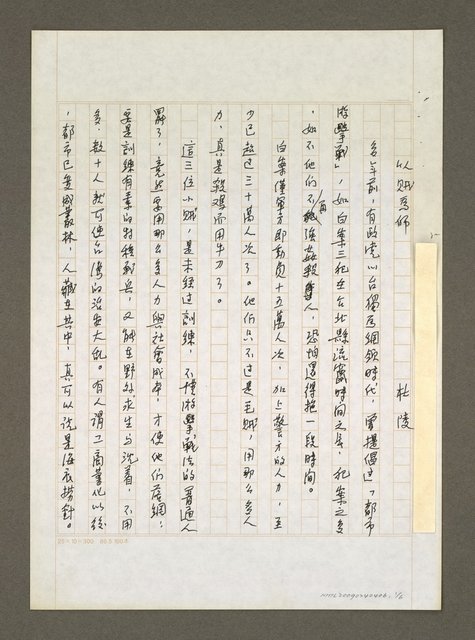 以贼為師
杜陵
多年前，有政党以台獨為綱領時代，曾提倡过「都市
游擊戰」，如白案三犯在台北縣流竄時間之長，犯案之多
，如不他們不再強姦殺人，恐怕還得拖一段時間。
白案僅軍方即動員十五萬人次，加上警方的人力，至
少已超过三十萬人次了。他們只不过是毛贼，用那么多人
力，真是殺鸡而用牛刀了。
這三位小贼，是未經过訓練，不懂游擊戰法的普通人
罷了，竟然要用那么多人力與社會成本，才使他們落網，
要是訓練有素的特種戰兵，又能在野外求生与沈着，不用
多，数十人就可使台湾的治安大乱。有人謂工商業化以後
，都市已变成叢林，人藏在其中，真可以說是海底撈針。
25×10=300 86.5.100本
NMTL20090240406, 1/2